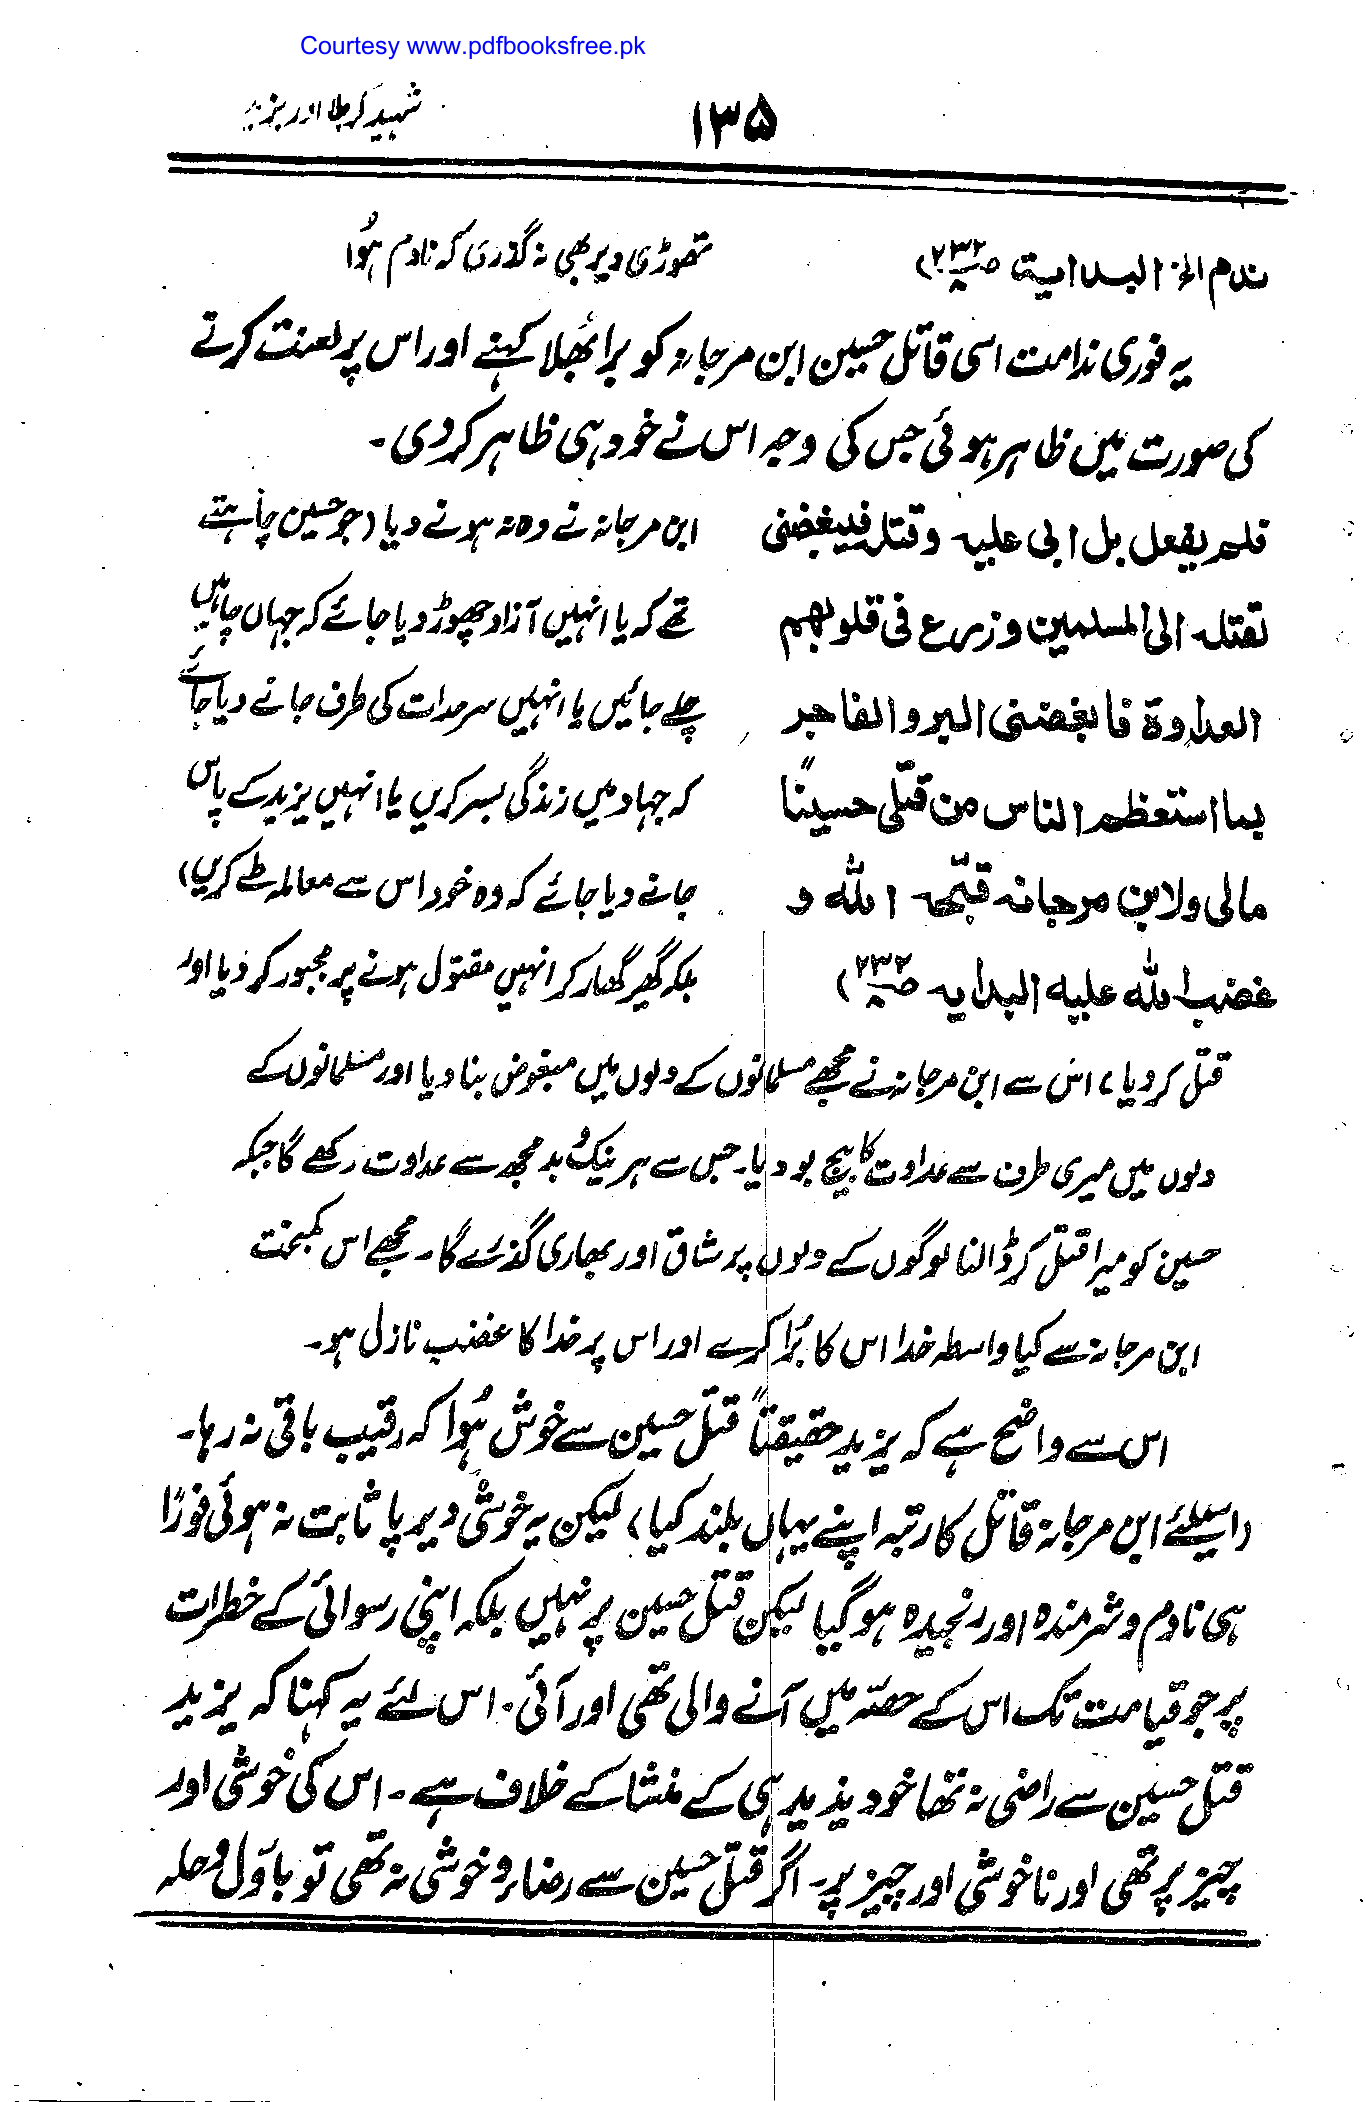 Courtesy www.pdfbooksfree.pk
شہید کربلا اور یزید
۱۳۵
ندم الخ البدایة ص۲۳۲/۸)
تھوڑی دیر بھی نہ گذری کہ نادم ہُوا
یہ فوری ندامت اسی قاتل حسین ابن مرجانہ کو برا بھلا کہنے اور اس پر لعنت کرتے
کی صورت میں ظاہر ہوئی جس کی وجہ اس نے خود ہی ظاہر کر دی ۔
فلم یفعل بل ابی علیہ وقتلہ فبغضنی
بقتلہ الی المسلمین وزرع فی قلوبھم
العداوة فابغضنی البر والفاجر
بما استعظم الناس من قتلی حسینًا
مالی ولابن مرجانہ قبّحہ اللہ و
غضب اللہ علیہ البدایہ ص۲۳۲/۸)
ابن مرجانہ نے وہ نہ ہونے دیا (جو حسین چاہتے
تھے کہ یا انہیں آزاد چھوڑ دیا جائے کہ جہاں چاہیں
چلے جائیں یا انہیں سرحدات کی طرف جانے دیا جائے
کہ جہاد میں زندگی بسر کریں یا انہیں یزید کے پاس
جانے دیا جائے کہ وہ خود اس سے معاملہ طے کریں)
بلکہ گھیر گھار کر انہیں مقتول ہونے پر مجبور کر دیا اور
قتل کر دیا، اس سے ابن مرجانہ نے مجھے مسلمانوں کے دلوں میں مبغوض بنا دیا اور مسلمانوں کے
دلوں میں میری طرف سے عداوت کا بیج بو دیا۔ جس سے ہر نیک و بد مجھ سے عداوت رکھے گا جبکہ
حسین کو میرا قتل کر ڈالنا لوگوں کے دلوں پر شاق اور بھاری گذرے گا۔ مجھے اس کمبخت
ابن مرجانہ سے کیا واسطہ خدا اس کا بُرا کرے اور اس پر خدا کا غضب نازل ہو۔
اس سے واضح ہے کہ یزید حقیقتاً قتل حسین سے خوش ہُوا کہ رقیب باقی نہ رہا۔
(اسلئے ابن مرجانہ قاتل کا رتبہ اپنے یہاں بلند کیا، لیکن یہ خوشی دیر پا ثابت نہ ہوئی فورًا
ہی نادم و شرمندہ اور رنجیدہ ہو گیا لیکن قتل حسین پر نہیں بلکہ اپنی رسوائی کے خطرات
پر جو قیامت تک اس کے حصّہ میں آنے والی تھی اور آئی۔ اس لئے یہ کہنا کہ یزید
قتل حسین سے راضی نہ تھا خود یزید ہی کے منشا کے خلاف ہے۔ اس کی خوشی اور
چیز پر تھی اور ناخوشی اور چیز پر۔ اگر قتل حسین سے رضاء و خوشی نہ تھی تو باوّل وھلہ